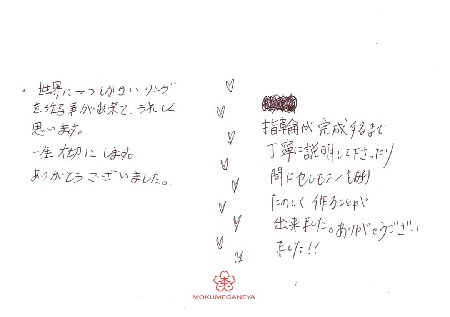 ・世界に一つしかないリング
を作る事が出来て、うれしく
思います。
一生大切にします。
ありがとうございました。
指輪が完成するまで
丁寧に説明して下さったり
間にセレモニーも
たのしく作ることが
出来ました。ありがとうござい
ました!!
MOKUMEGANEYA